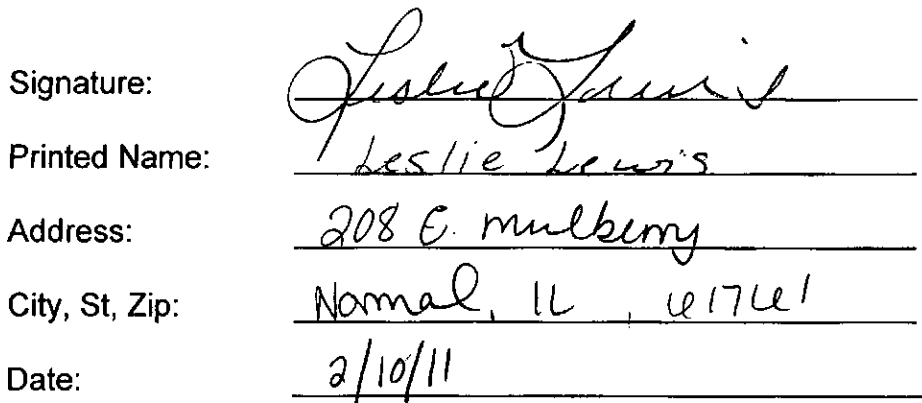 Signature: Leslie Lewis
Printed Name: Leslie Lewis
Address: 208 E. Mulberry
City, St, Zip: Normal, IL, 61761
Date: 2/10/11